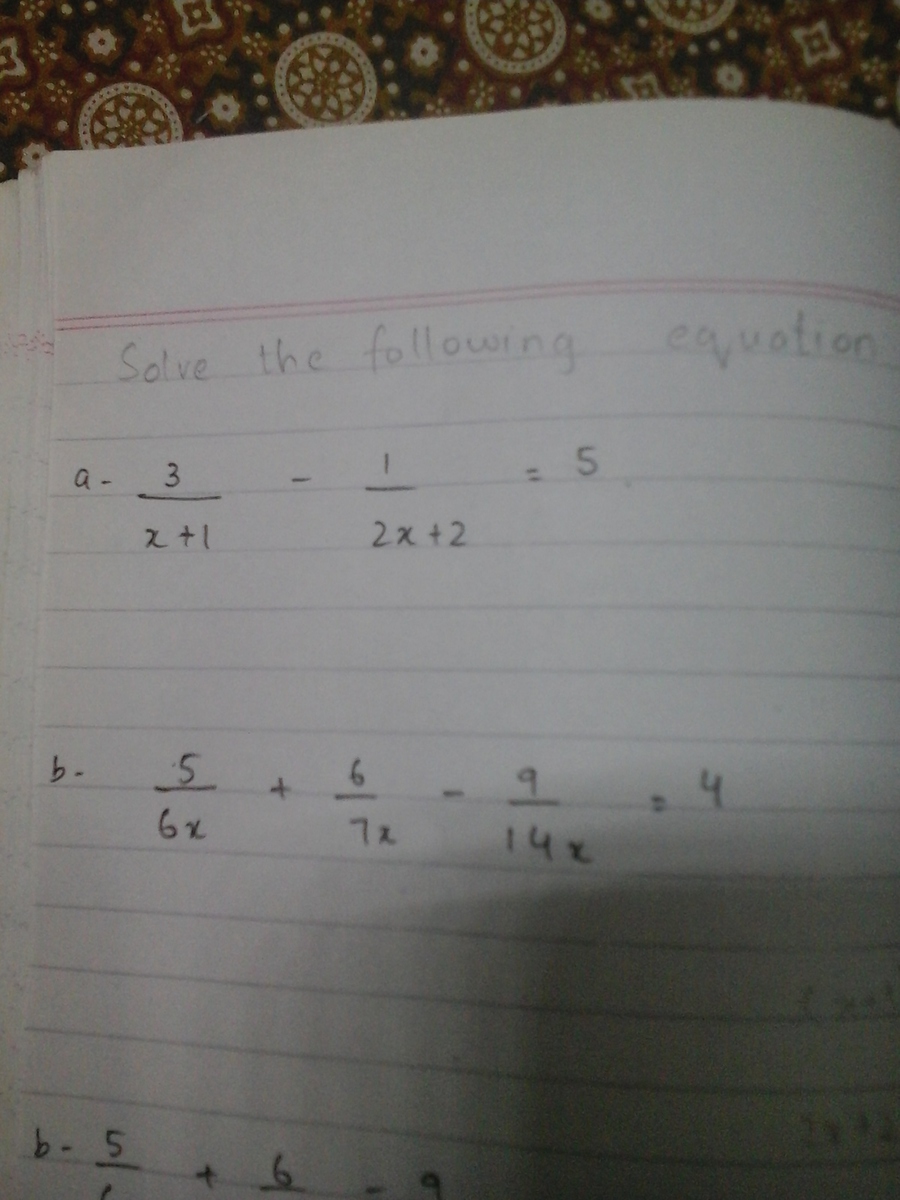 Solve the following equation
a- 3/x+1 - 1/2x+2 = 5
b- 5/6x + 6/7x - 9/14x = 4
b- 5 + 6 - 9